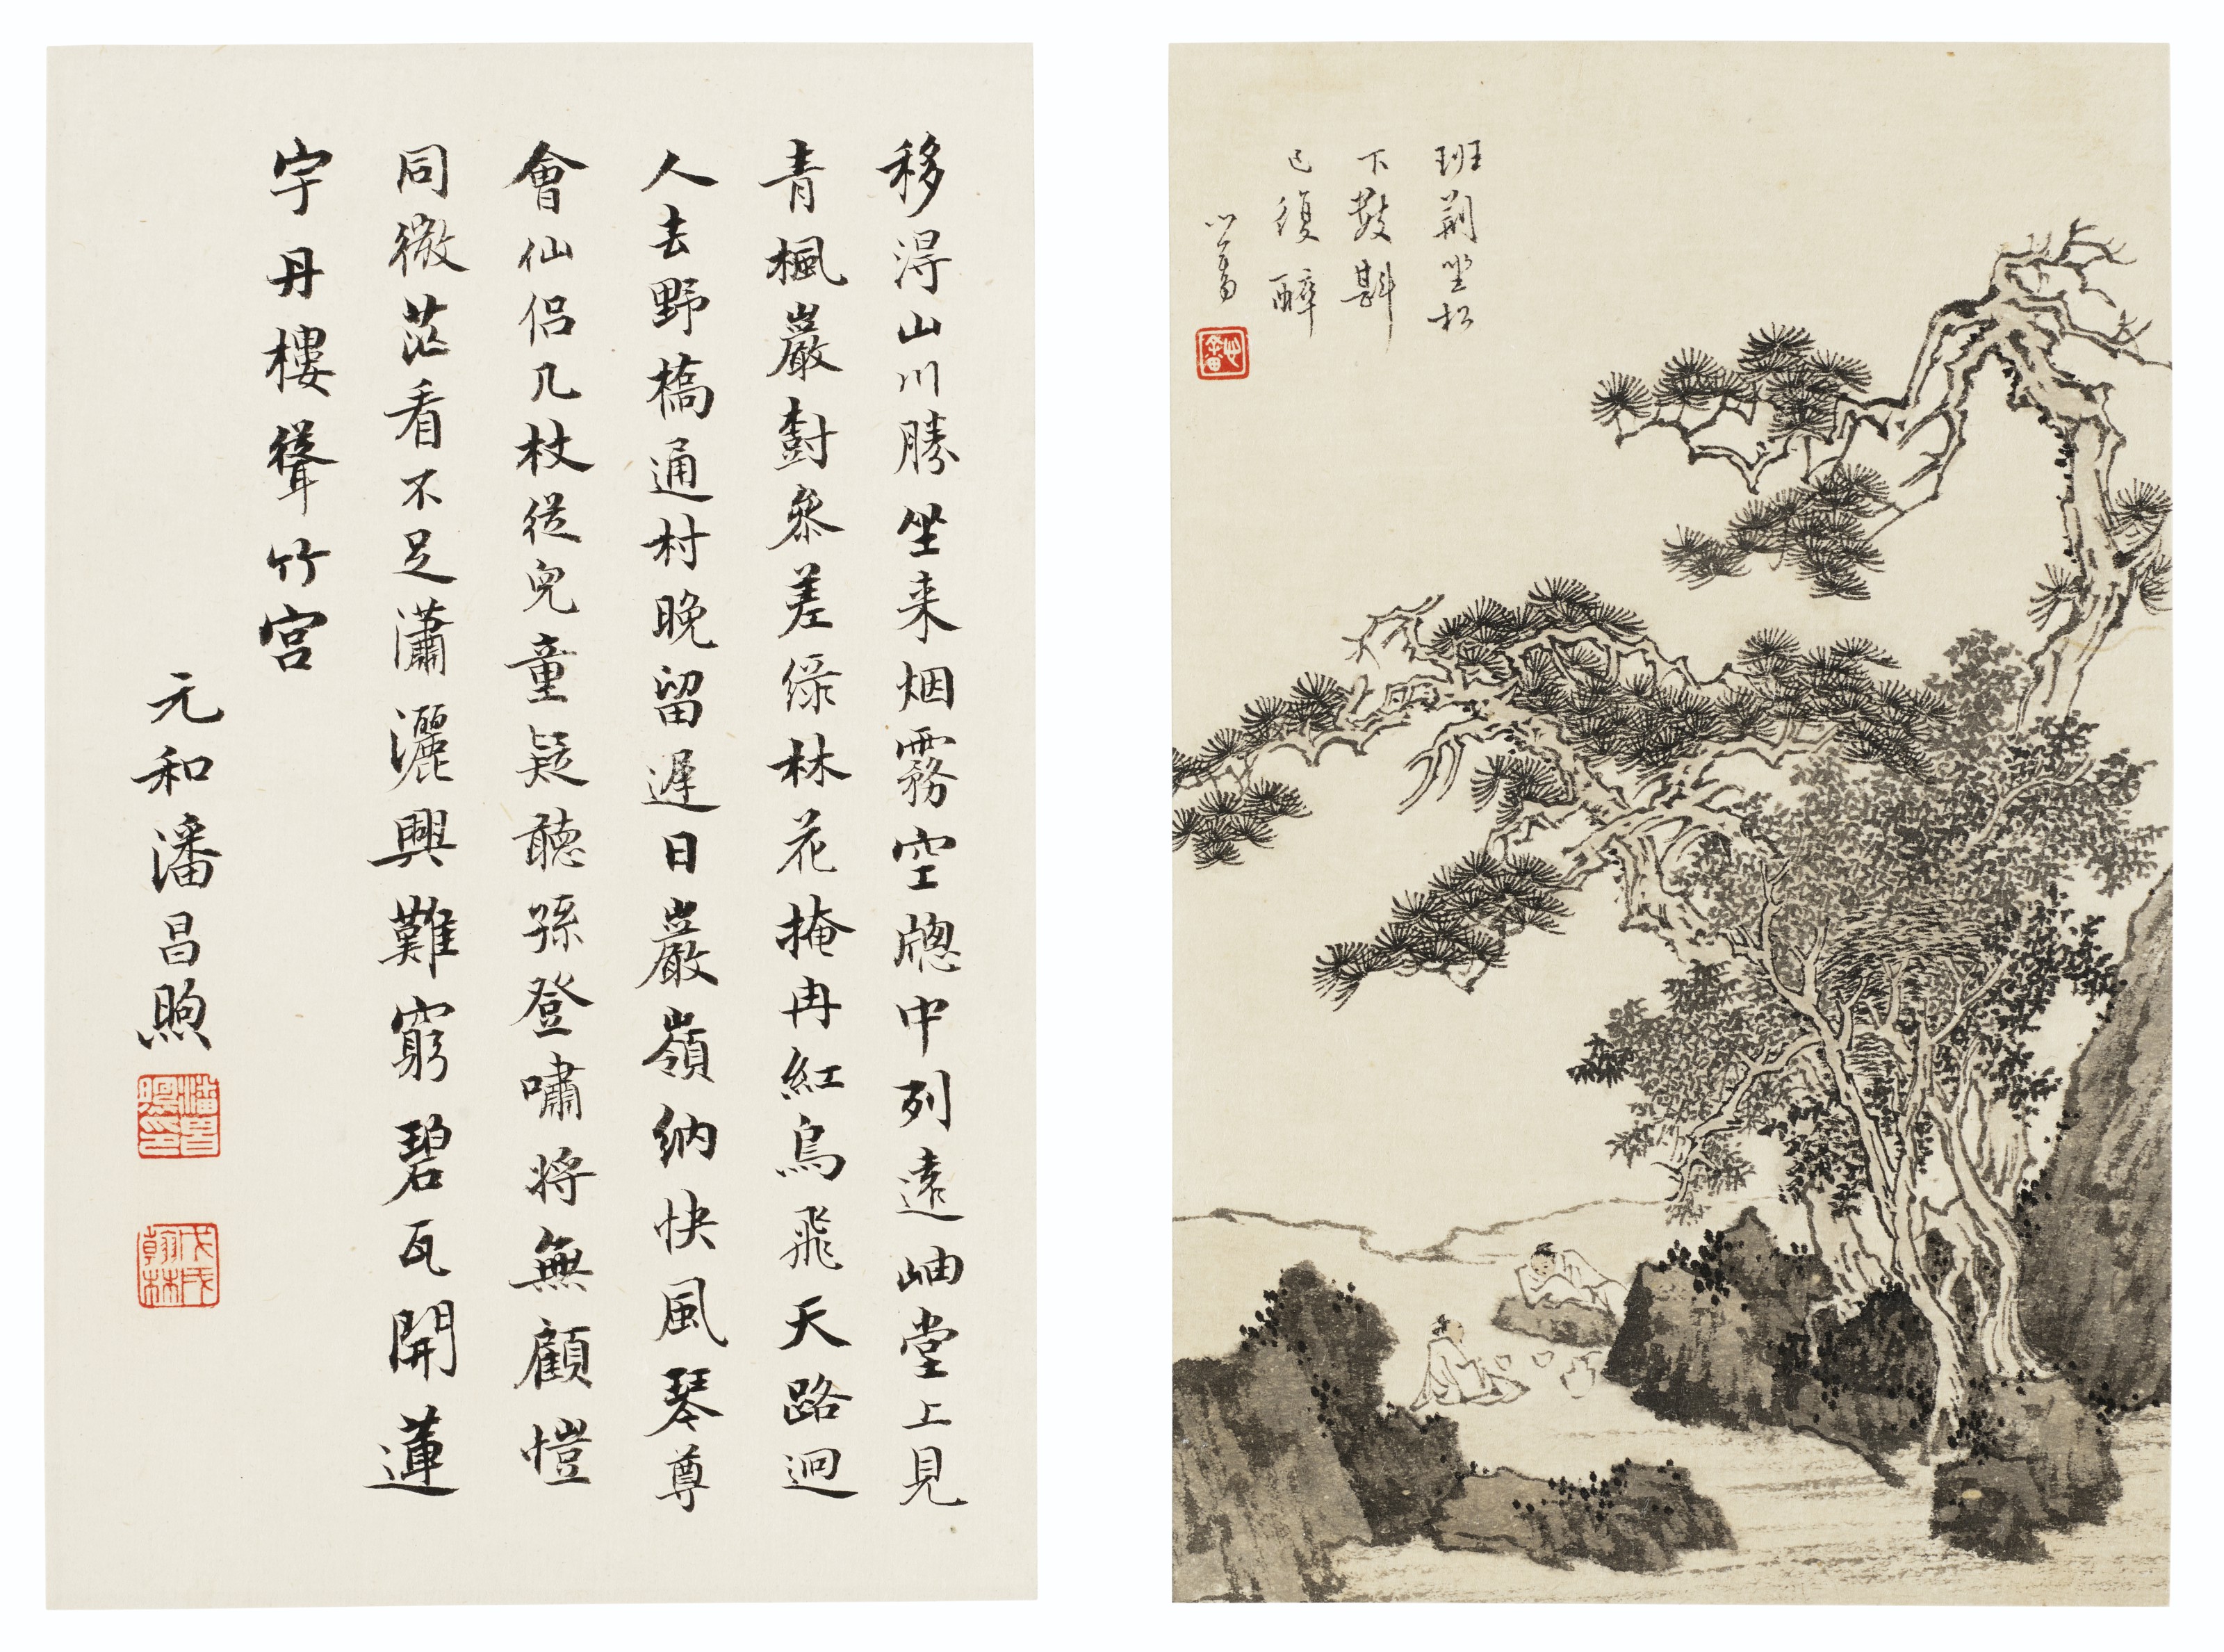 班荆坐松
下數斟
已復醉
心畬
心畬
移得山川勝坐来烟霧空牕中列遠岫堂上見
青楓巖樹參差綠林花掩冉紅鳥飛天路迥
人去野橋通村晚留遲日巖嶺納快風琴尊
會仙侶几杖從兒童疑聽孫登嘯將無顧愷
同微茫看不足瀟灑興難窮碧瓦開蓮
宇丹樓聳竹宮
元和潘昌煦
潘昌煦印
戊戌翰林